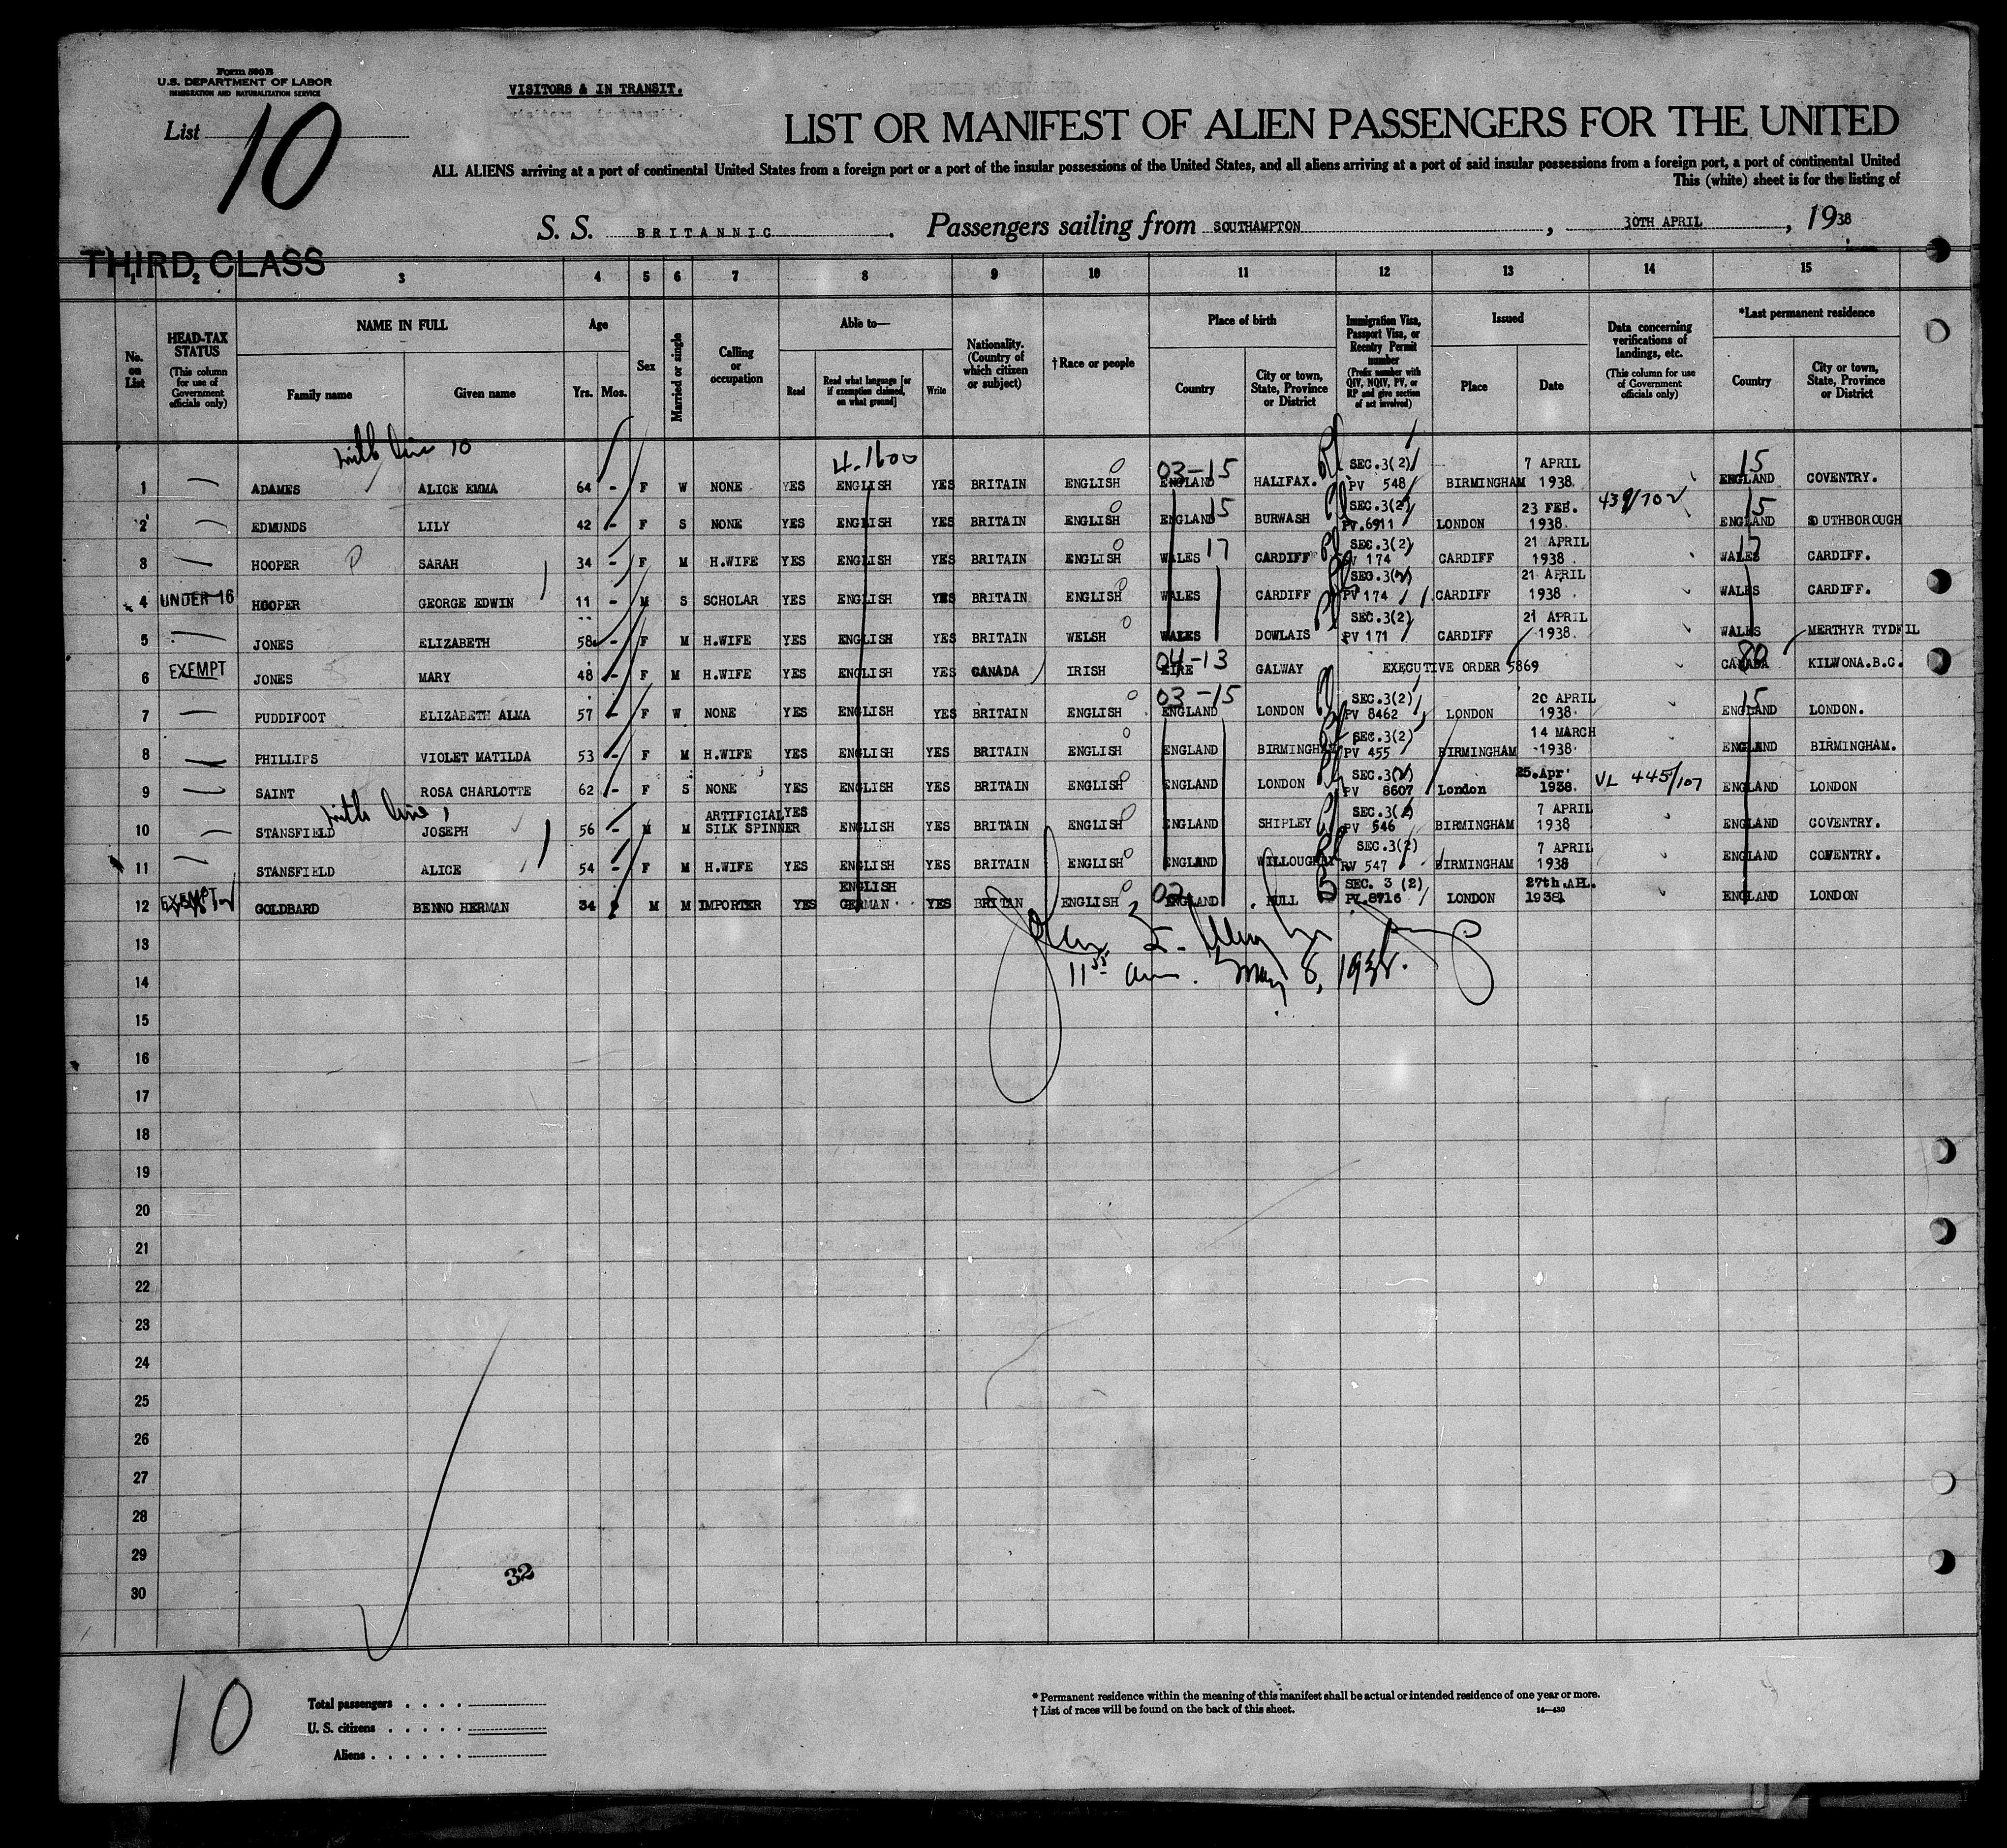 Form 500 B
U.S. DEPARTMENT OF LABOR
IMMIGRATION AND NATURALIZATION SERVICE
VISITORS & IN TRANSIT.
List 10
LIST OR MANIFEST OF ALIEN PASSENGERS FOR THE UNITED
ALL ALIENS arriving at a port of continental United States from a foreign port or a port of the insular possessions of the United States, and all aliens arriving at a port of said insular possessions from a foreign port, a port of continental United
This (white) sheet is for the listing of
S. S. BRITANNIC. Passengers sailing from SOUTHAMPTON, 30TH APRIL, 1938
THIRD CLASS
1 2 3 4 5 6 7 8 9 10 11 12 13 14 15
No. on List
HEAD-TAX STATUS (This column for use of Government officials only)
NAME IN FULL Family name Given name
Age Yrs. Mos.
Sex
Married or single
Calling or occupation
Able to— Read Read what language [or if exemption claimed, on what ground] Write
Nationality. (Country of which citizen or subject)
†Race or people
Place of birth Country City or town, State, Province or District
Immigration Visa, Passport Visa, or Reentry Permit number (Prefix number with QIV, NQIV, PV, or RP and give section of act involved)
Issued Place Date
Data concerning verifications of landings, etc. (This column for use of Government officials only)
*Last permanent residence Country City or town, State, Province or District
with line 10
4-1600 03-15 15
1 — ADAMES ALICE EMMA 64 - F W NONE YES ENGLISH YES BRITAIN ENGLISH ENGLAND HALIFAX. SEC.3(2) PV 548 BIRMINGHAM 7 APRIL 1938 ENGLAND COVENTRY.
2 — EDMUNDS LILY 42 - F S NONE YES ENGLISH YES BRITAIN ENGLISH ENGLAND 15 BURWASH SEC.3(2) PV.6911 LONDON 23 FEB. 1938. 439/702 15 ENGLAND SOUTHBOROUGH
3 — HOOPER SARAH 34 - F M H.WIFE YES ENGLISH YES BRITAIN ENGLISH WALES 17 CARDIFF SEC.3(2) PV 174 CARDIFF 21 APRIL 1938. 17 WALES CARDIFF.
4 UNDER 16 HOOPER GEORGE EDWIN 11 - M S SCHOLAR YES ENGLISH YES BRITAIN ENGLISH WALES CARDIFF SEC.3(2) PV 174 CARDIFF 21 APRIL 1938. WALES CARDIFF.
5 — JONES ELIZABETH 58 - F M H.WIFE YES ENGLISH YES BRITAIN WELSH WALES DOWLAIS SEC.3(2) PV 171 CARDIFF 21 APRIL 1938. WALES MERTHYR TYDFIL
04-13 80
6 EXEMPT JONES MARY 48 - F M H.WIFE YES ENGLISH YES CANADA IRISH EIRE GALWAY EXECUTIVE ORDER 5869 CANADA KILWONA.B.C.
03-15 15
7 — PUDDIFOOT ELIZABETH ALMA 57 - F W NONE YES ENGLISH YES BRITAIN ENGLISH ENGLAND LONDON SEC.3(2) PV 8462 LONDON 20 APRIL 1938. ENGLAND LONDON.
8 — PHILLIPS VIOLET MATILDA 53 - F M H.WIFE YES ENGLISH YES BRITAIN ENGLISH ENGLAND BIRMINGHAM SEC.3(2) PV 455 BIRMINGHAM 14 MARCH 1938. ENGLAND BIRMINGHAM.
9 — SAINT ROSA CHARLOTTE 62 - F S NONE YES ENGLISH YES BRITAIN ENGLISH ENGLAND LONDON SEC.3(2) PV 8607 London 25.Apr. 1938. VL 445/107 ENGLAND LONDON
with line 1
10 — STANSFIELD JOSEPH 56 - M M ARTIFICIAL SILK SPINNER YES ENGLISH YES BRITAIN ENGLISH ENGLAND SHIPLEY SEC.3(2) PV 546 BIRMINGHAM 7 APRIL 1938 ENGLAND COVENTRY.
11 — STANSFIELD ALICE 54 - F M H.WIFE YES ENGLISH YES BRITAIN ENGLISH ENGLAND WILLOUGHBY SEC.3(2) RV 547 BIRMINGHAM 7 APRIL 1938 ENGLAND COVENTRY.
12 EXEMPT GOLDBARD BENNO HERMAN 34 M M IMPORTER YES ENGLISH GERMAN YES BRITAN ENGLISH ENGLAND HULL SEC. 3 (2) PV.8716 LONDON 27th.APL. 1938. ENGLAND LONDON
13
11 55 am. May 8, 1938.
14
15
16
17
18
19
20
21
22
23
24
25
26
27
28
29
32
30
10
Total passengers . . . .
U. S. citizens . . . . .
Aliens . . . . . .
* Permanent residence within the meaning of this manifest shall be actual or intended residence of one year or more.
† List of races will be found on the back of this sheet.
14—430